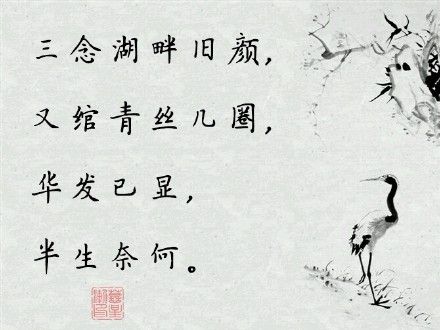 三念湖畔旧颜，
又绾青丝几圈，
华发已显，
半生奈何。